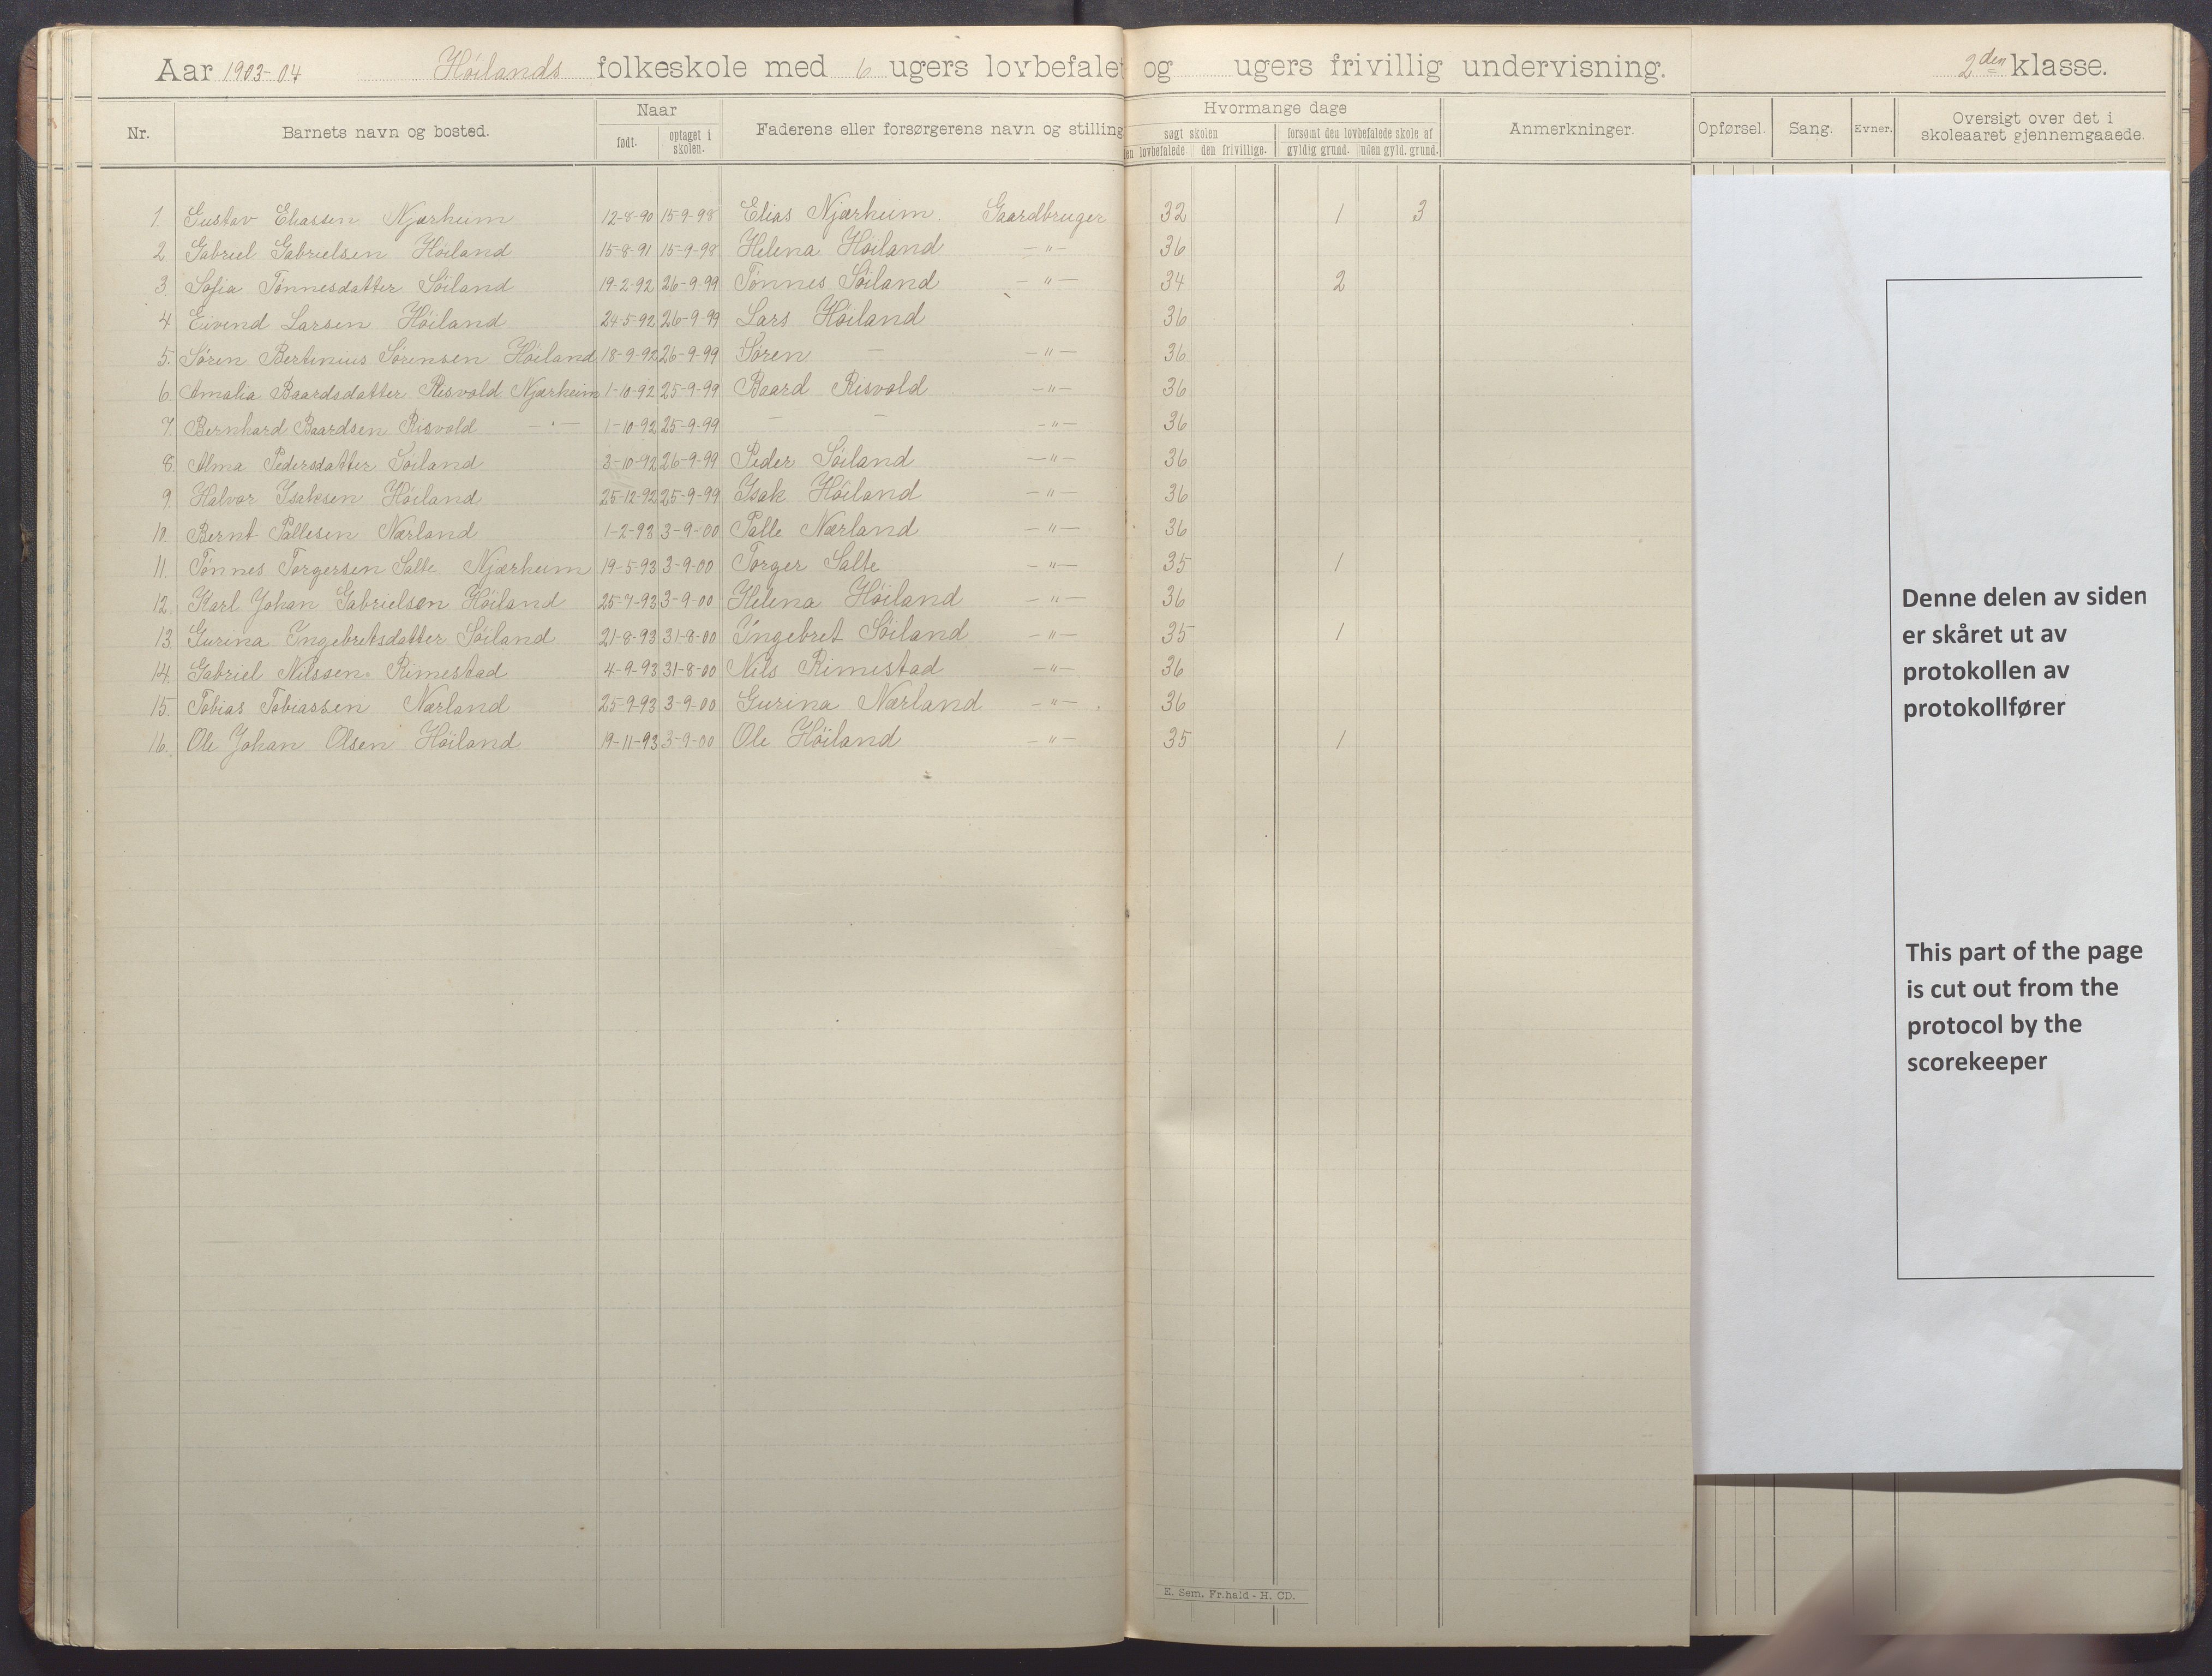 Aar 1903-04 Höilands folkeskole med 6 ugers lovbefalet og ugers frivillig undervisning. 2den klasse.
Nr. Barnets navn og bosted. Naar født. optaget i skolen. Faderens eller forsørgerens navn og stilling Hvormange dage søgt skolen den lovbefalede. den frivillige. forsømt den lovbefalede skole af gyldig grund. uden gyld. grund. Anmerkninger. Opførsel. Sang. Evner. Oversigt over det i skoleaaret gjennemgaaede.
1. Gustav Eliassen Njærheim 12-8-90 15-9-98 Elias Njærheim. Gaardbruger 32 1 3
2 Gabriel Gabrielsen Höiland 15-8-91 15-9-98 Helena Höiland —"— 36
3 Sofia Tønnesdatter Söiland 19-2-92 26-9-99 Tønnes Söiland —"— 34 2
4 Eivind Larsen Höiland 24-5-92 26-9-99 Lars Höiland 36
5. Søren Bertinius Sørensen Höiland 18-9-92 26-9-99 Søren — —"— 36
6. Amalia Baardsdatter Risvold Njærheim 1-10-92 25-9-99 Baard Risvold —"— 36
7. Bernhard Baardsen Risvold —"— 1-10-92 25-9-99 — — —"— 36
8. Alma Pedersdatter Söiland 3-10-92 26-9-99 Peder Söiland —"— 36
9. Halvor Isaksen Höiland 25-12-92 25-9-99 Isak Höiland —"— 36
10. Bernt Pallesen Nærland 1-2-93 3-9-00 Palle Nærland —"— 36
11. Tønnes Torgersen Salte Njærheim 19-5-93 3-9-00 Torger Salte —"— 35 1
12. Karl Johan Gabrielsen Höiland 25-7-93 3-9-00 Helena Höiland —"— 36
13. Gurina Ingebretsdatter Söiland 21-8-93 31-8-00 Ingebret Söiland —"— 35 1
14. Gabriel Nilssen Rimestad 4-9-93 31-8-00 Nils Rimestad —"— 36
15. Tobias Tobiassen Nærland 25-9-93 3-9-00 Gurina Nærland —"— 36
16. Ole Johan Olsen Höiland 19-11-93 3-9-00 Ole Höiland —"— 35 1
Denne delen av siden
er skåret ut av
protokollen av
protokollfører
This part of the page
is cut out from the
protocol by the
scorekeeper
E. Sem. Fr.hald - H. CD.